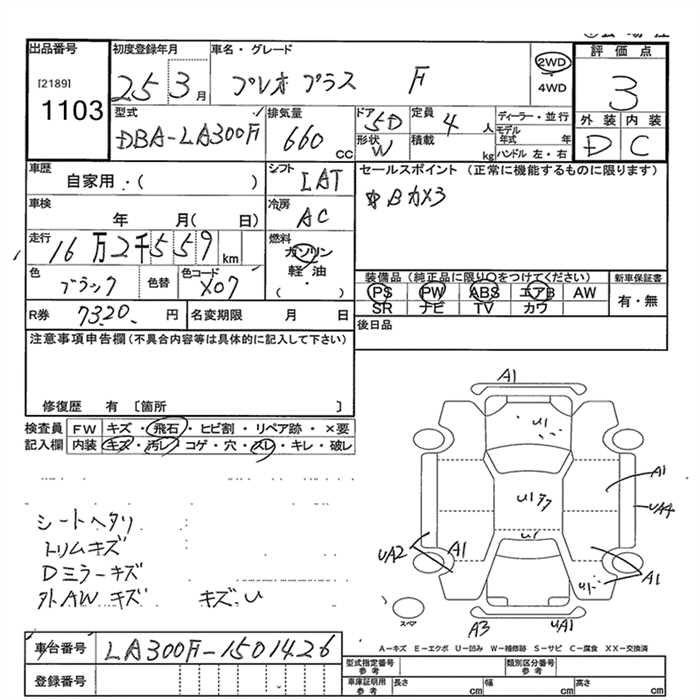 出品番号
[2189]
1103
初度登録年月
25 3月
車名・グレード
プレオプラス F
2WD
4WD
評価点
3
外装 内装
D C
型式
DBA-LA300F
排気量
660 CC
ドア 5D
形状 W
定員 4 人
積載 kg
ディーラー・並行
モデル年式 年
ハンドル 左・右
車歴
自家用・( )
シフト
LAT
セールスポイント (正常に機能するものに限ります)
車検
年 月( 日)
冷房
AC
走行
16万2千559km
燃料
ガソリン
軽・油
( )
色
ブラック
色替
色コード
X07
装備品(純正品に限り○をつけてください)
PS PW ABS エアB AW
SR ナビ TV カワ
新車保証書
有・無
R券 7320 円
名変期限 月 日
後日品
注意事項申告欄(不具合内容等は具体的に記入して下さい)
修復歴 有 〔箇所 〕
検査員 FW キズ・飛石・ヒビ割・リペア跡・×要
記入欄 内装 キズ・汚レ・コゲ・穴・スレ・キレ・破レ
シートヘタリ
トリムキズ
Dミラーキズ
外AWキズ キズ.U
A1
U1
A1
UA4
U1
UA2
A1
U1
A1
スペア
A3
UA1
A-キズ E-エクボ U-凹み W-補修跡 S-サビ C-腐食 XX-交換済
車台番号
LA300F-1501426
登録番号
型式指定番号 参考
類別区分番号 参考
車庫証明用 参考
長さ cm 幅 cm 高さ cm